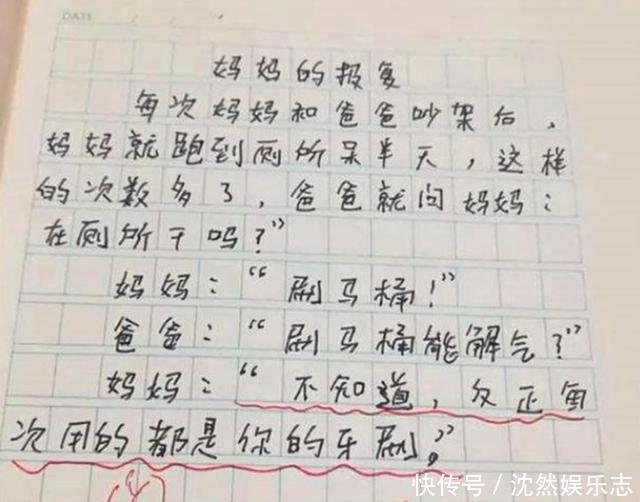 DATE
妈妈的报复
每次妈妈和爸爸吵架后，
妈妈就跑到厕所呆半天，这样
的次数多了，爸爸就问妈妈：
在厕所干吗？”
妈妈：“刷马桶！”
爸爸：“刷马桶能解气？”
妈妈：“不知道，反正每
次用的都是你的牙刷。”
快传号／沈然娱乐志